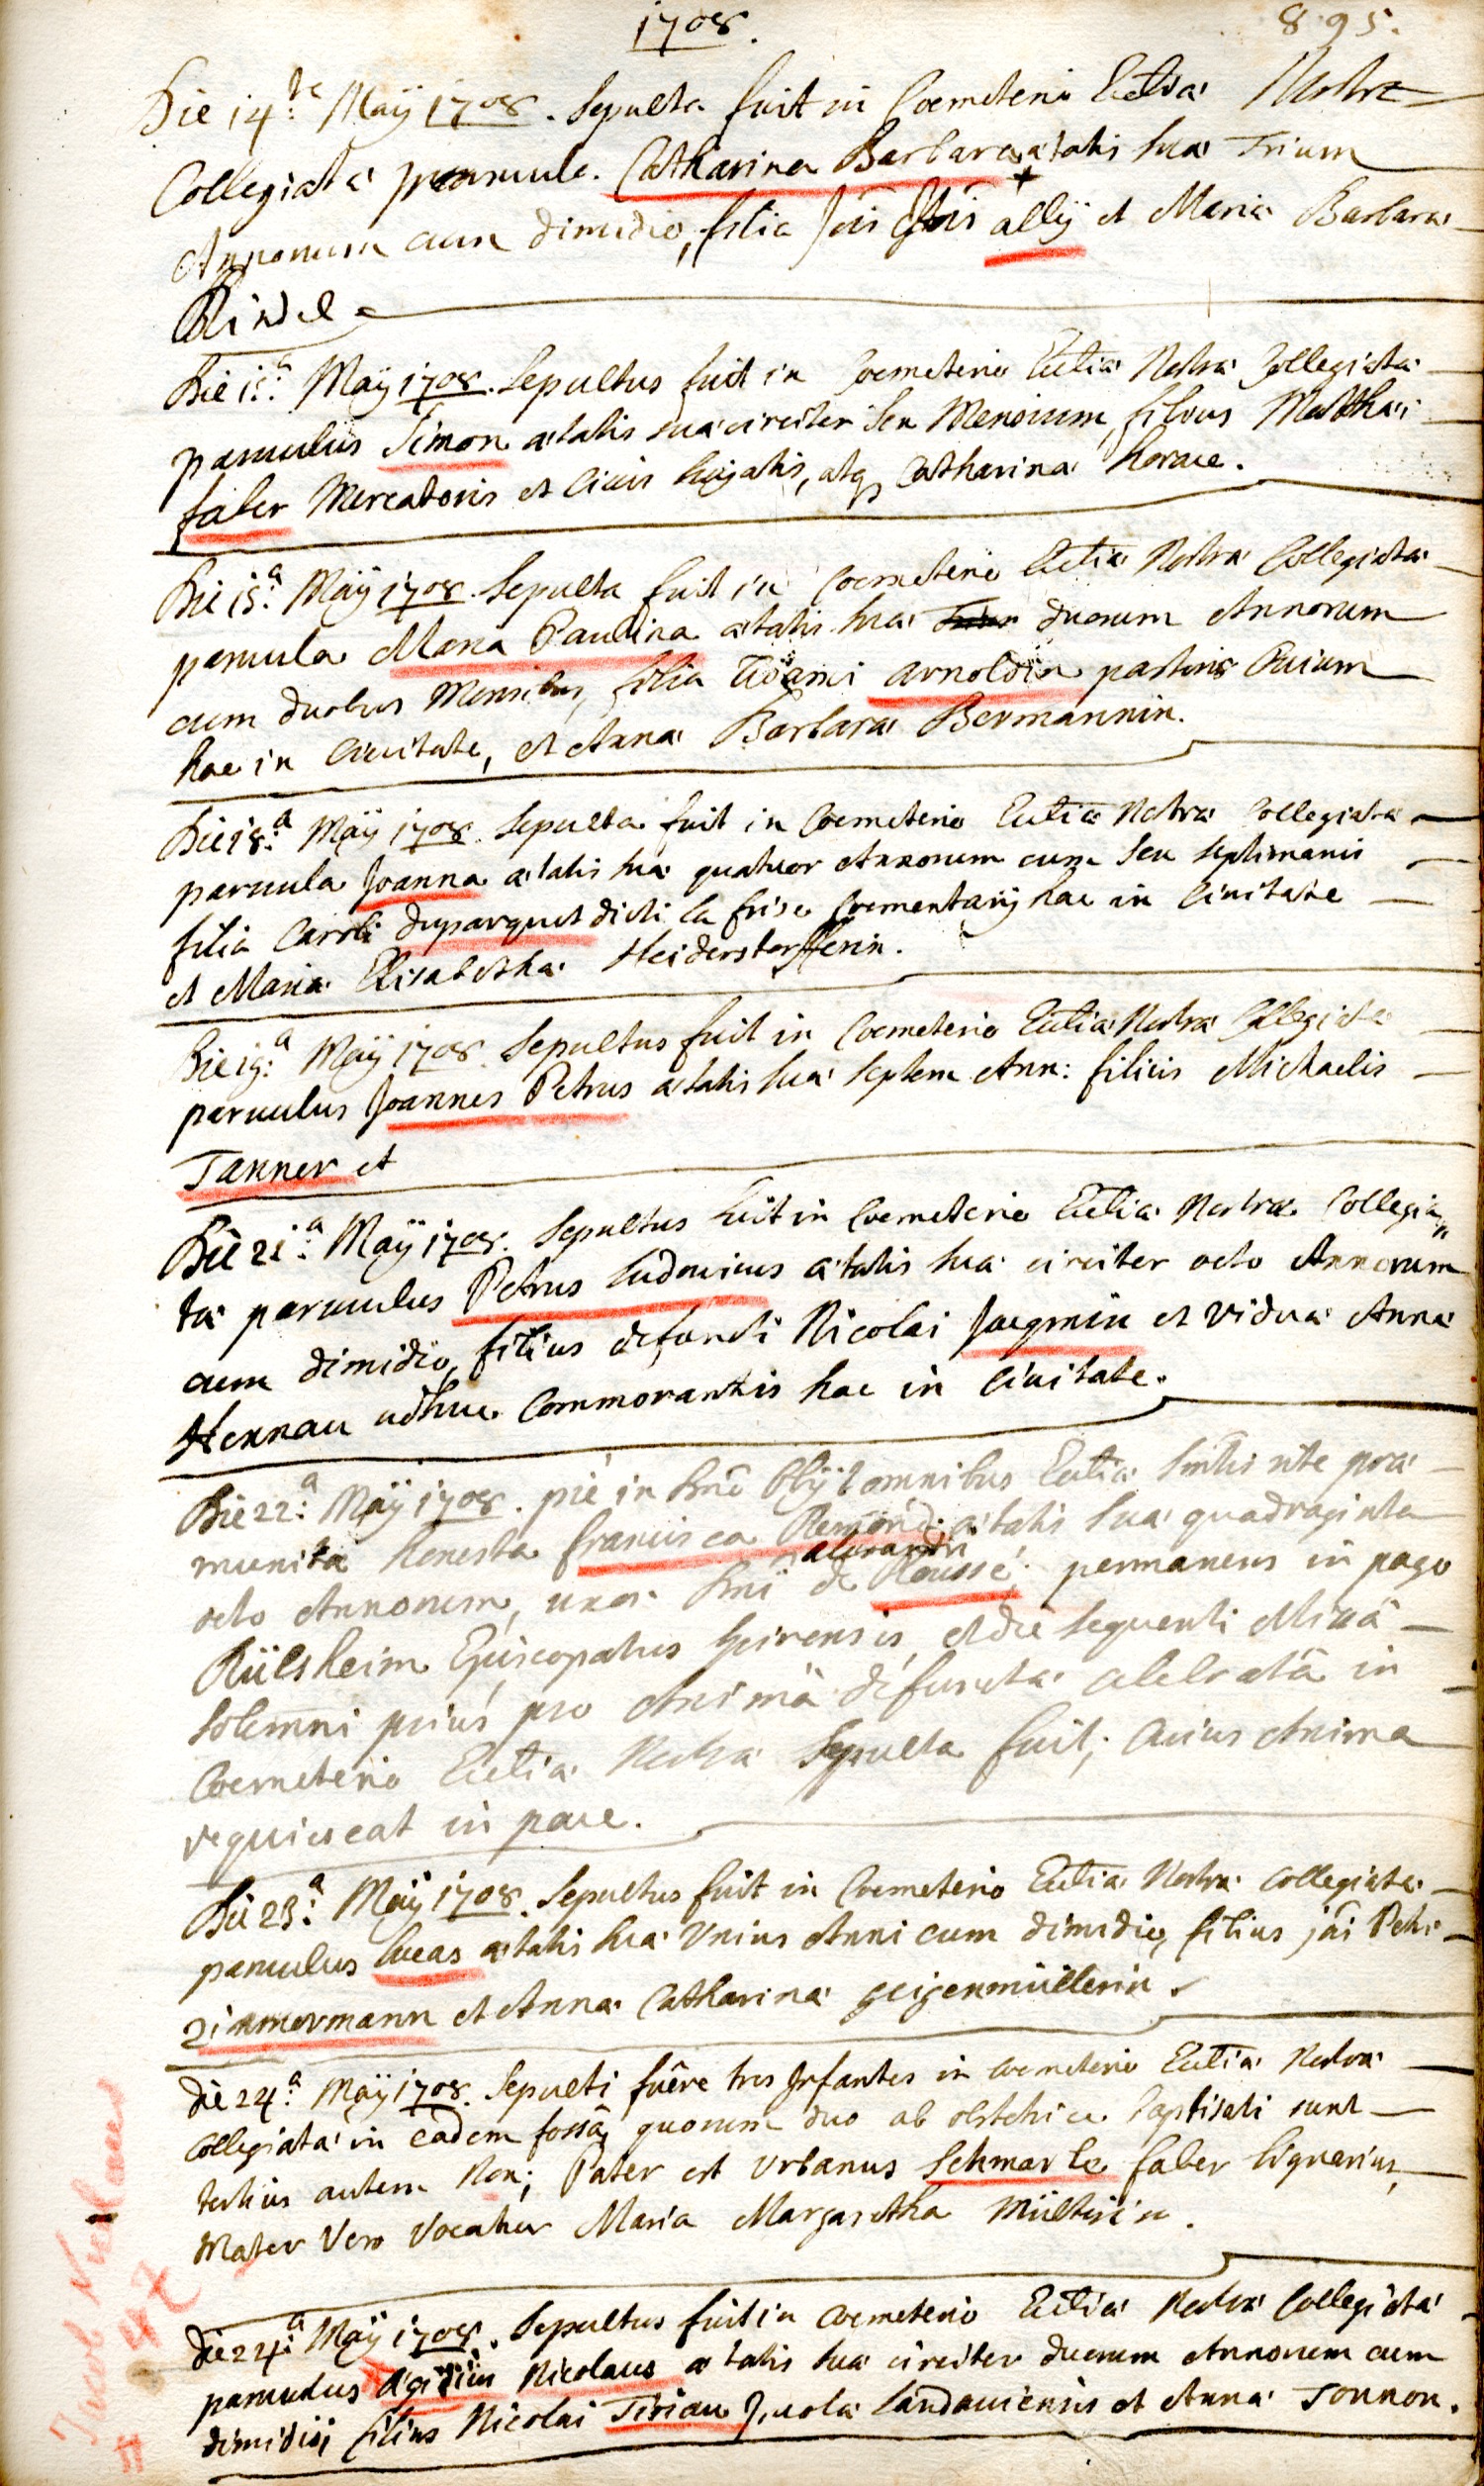 1708.
895.
Die 14ta Maÿ 1708. Sepulta fuit in Coemeterio Eccliæ Nostræ
Collegiatæ parvula Catharina Barbara ætatis suæ Trium
Annorum cum dimidio, filia Jois allÿ et Mariæ Barbaræ
Rindel
Die 15.a Maÿ 1708. Sepultus fuit in Coemeterio Eccliæ Nostræ Collegiatæ
parvulus Simon ætatis suæ circiter Sex Mensium, filius Matthæi
faber Mercatoris et Civis hujatis, atq Catharinæ horace.
Die 15.a Maÿ 1708. Sepulta fuit in Coemeterio Eccliæ Nostræ Collegiatæ
parvula Maria Paulina ætatis suæ duorum Annorum
cum duobus Mensibus, filia arnoldin pastoris Ovium
hac in Civitate, et Annæ Barbaræ Bermannin.
Die 18.a Maÿ 1708. Sepulta fuit in Coemeterio Eccliæ Nostræ Collegiatæ
parvula Joanna ætatis suæ quatuor Annorum cum Sex Septimanis
filia Caroli duparquet dicti la frise Coementarÿ hac in Civitate
et Mariæ Elisabethæ Heiderstorfferin.
Die 19.a Maÿ 1708. Sepultus fuit in Coemeterio Eccliæ Nostræ Collegiatæ
parvulus Joannes Petrus ætatis suæ Septem Ann: filius Michaelis
Tanner et
Die 21.a Maÿ 1708. Sepultus fuit in Coemeterio Eccliæ Nostræ Collegia„
tæ parvulus Petrus Ludovicus ætatis suæ circiter octo Annorum
cum dimidio, filius defuncti Nicolai Jacqmin et viduæ Annæ
Hennau adhuc Commorantis hac in Civitate.
Die 22.a Maÿ 1708. piè in Dno Obÿt omnibus Eccliæ Sacramentis rite præ
munita honesta francisca Remond ætatis suæ quadraginta
octo Annorum, uxor Dni alexandri de Roussé permanens in pago
Rülsheim Episcopatus Spirensis, et die sequenti Missâ
Solemni prius pro Animâ defunctæ celebratâ in
Coemeterio Eccliæ Nostræ Sepulta fuit; Cuius Anima
requiescat in pace.
Die 23.a Maÿ 1708. Sepultus fuit in Coemeterio Eccliæ Nostræ Collegiatæ
parvulus lucas ætatis suæ Unius Anni cum dimidio, filius jois Petri
Zimmermann et Annæ Catharinæ geigenmüllerin.
Die 24.a Maÿ 1708. Sepulti fuêre tres Infantes in Coemeterio Eccliæ Nostræ
Collegiatæ in eâdem fossâ, quorum duo ab obstetrice baptisati sunt
tertius autem Non; Pater est Urbanus Schmarle faber lignarius,
Mater Vero Vocatur Maria Margaretha
Die 24.a Maÿ 1708. Sepultus fuit in Coemeterio Eccliæ Nostræ Collegiatæ
parvulus Ægidius Nicolaus ætatis suæ circiter duorum Annorum cum
dimidio, filius Nicolai Tirian Incolæ Landaviensis et Annæ Tonnon.
# 47